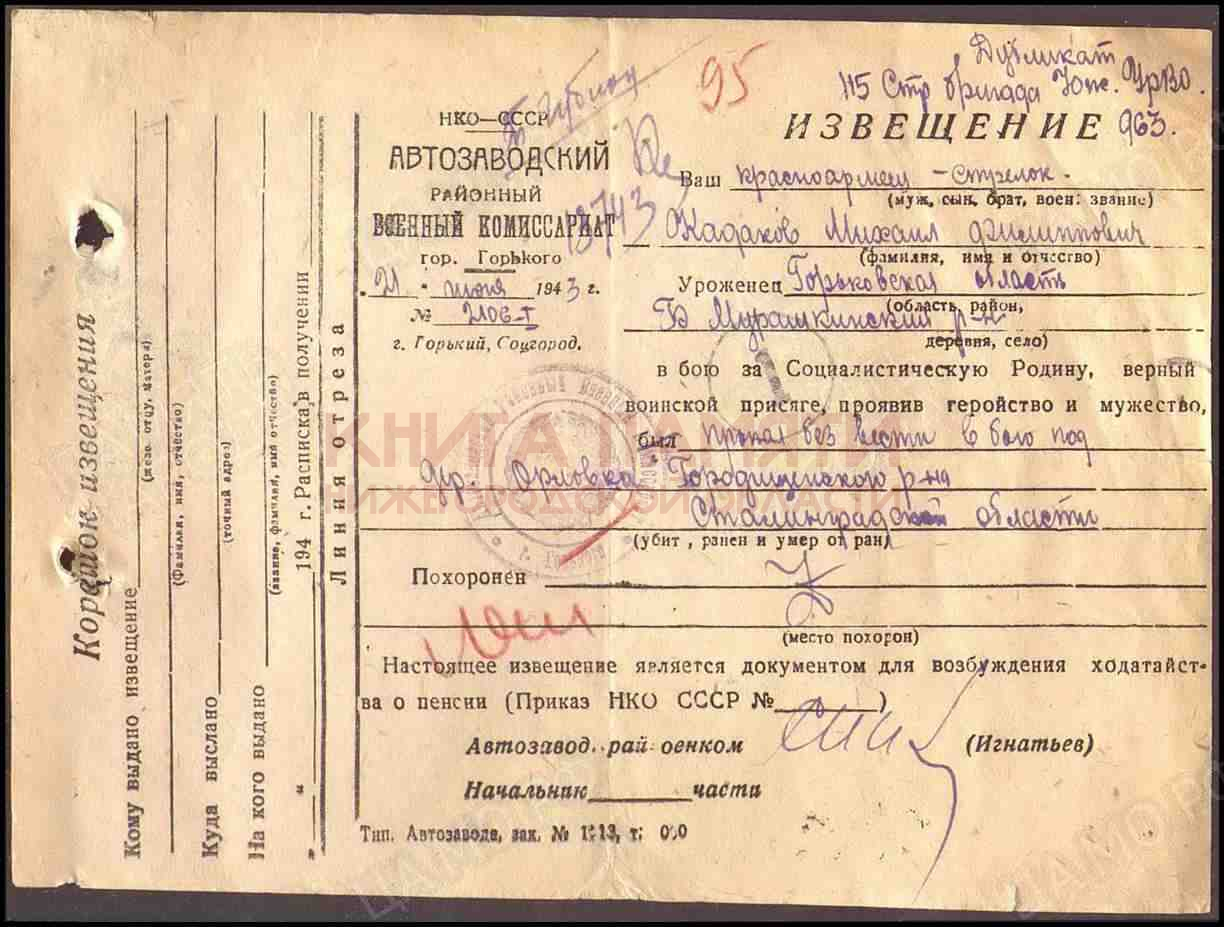 Дубликат
115 Стр бригада Юж. УрВО.
95
ИЗВЕЩЕНИЕ 963.
НКО—СССР
АВТОЗАВОДСКИЙ
РАЙОННЫЙ
ВОЕННЫЙ КОМИССАРИАТ
гор. Горького
21 " июня 1943 г.
№ 2106-I
г. Горький, Соцгород.
18743
Ваш красноармеец - стрелок.
(муж, сын, брат, воен. звание)
Кадаков Михаил Филиппович
(фамилия, имя и отчество)
Уроженец Горьковская область
(область, район,
Б Мурашкинский р-н
деревня, село)
в бою за Социалистическую Родину, верный
воинской присяге, проявив геройство и мужество,
был пропал без вести в бою под
дер. Орловка Городищенского р-на
Сталинградской области
(убит, ранен и умер от ран)
Похоронен
(место похорон)
Настоящее извещение является документом для возбуждения ходатайст-
ва о пенсии (Приказ НКО СССР № )
Автозавод. рай оенком (Игнатьев)
Начальник части
Тип. Автозавода, зак. №
Корешок извещения
Кому выдано извещение
(жене, отцу, матери)
(Фамилия, имя, отчество)
Куда выслано
(точный адрес)
На кого выдано
(звание, фамилия, имя отчество)
" " 194 г. Расписка в получении
Линия отреза
КНИГА ПАМЯТИ
НИЖЕГОРОДСКОЙ ОБЛАСТИ
ЦАМО РФ